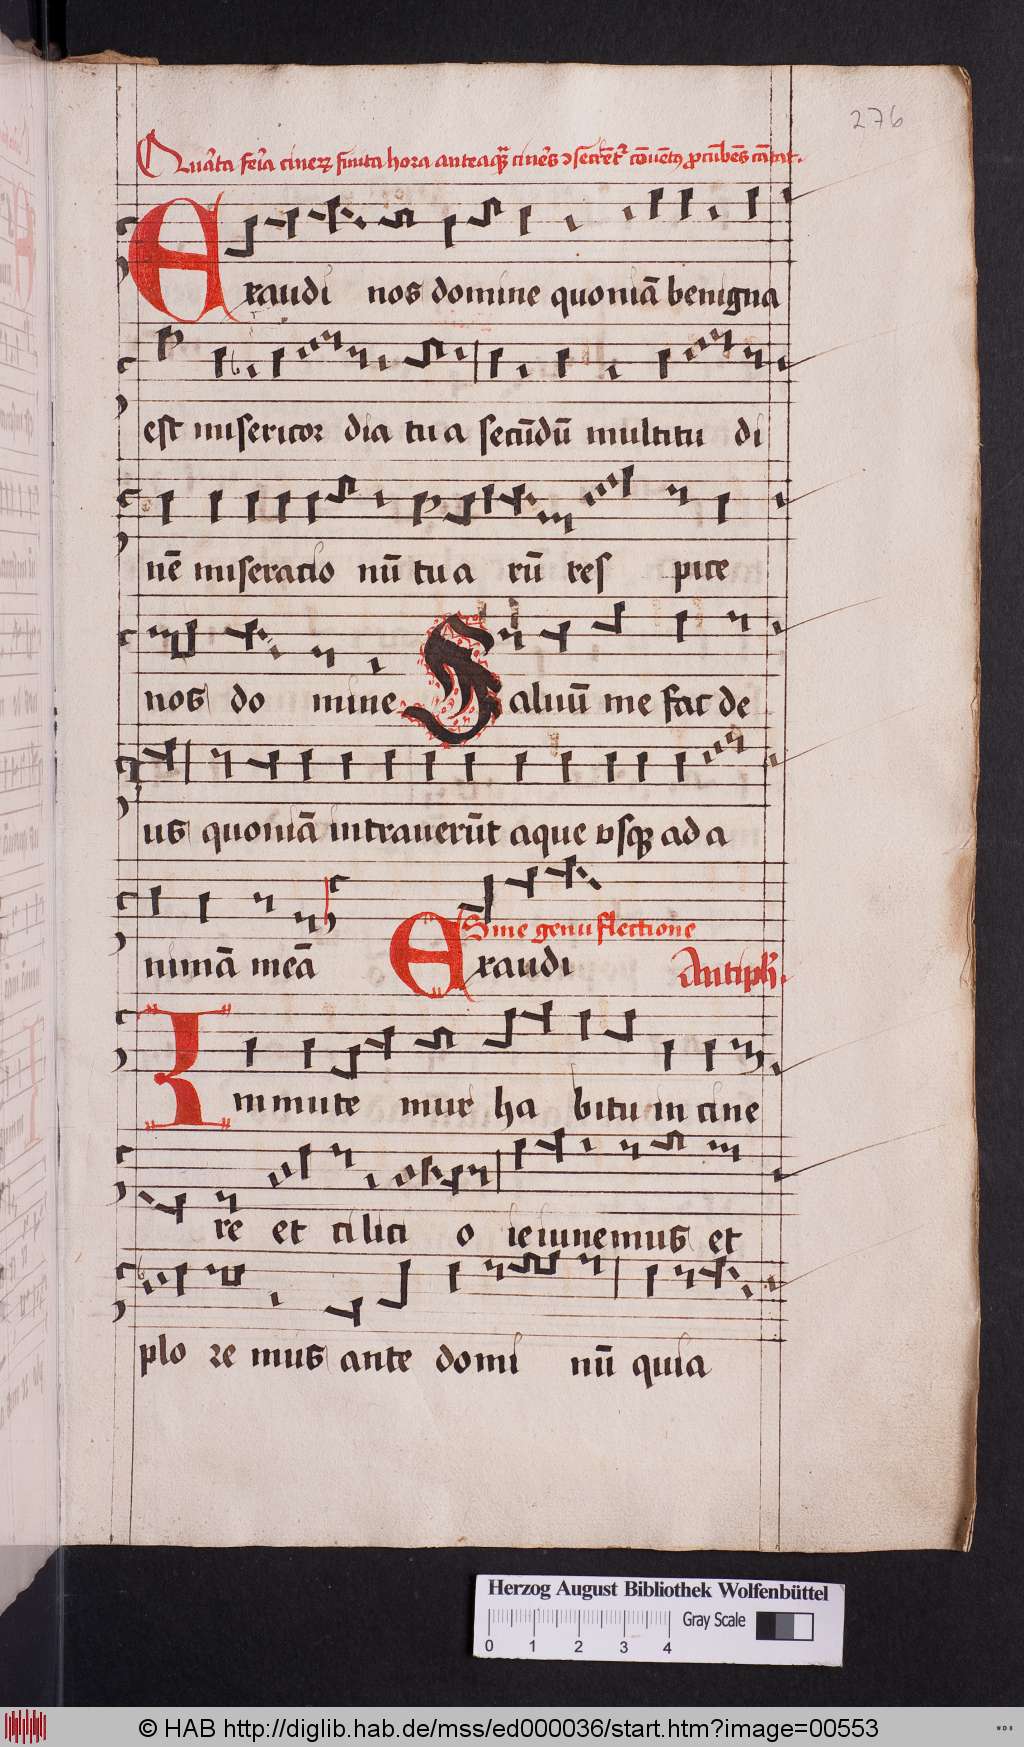 276
Quarta feria cinerꝝ finita hora anteaq̄ cineres ꝯsecrētur cōuētus ꝓcūbēs cātat.
Exaudi nos domine quoniā benigna
est misericor dia tua secūdū multitu di
nē miseratio nū tua rū res pice
nos do mine Saluū me fac de
us quoniā intrauerūt aque vsqꝫ ad a
nimā meā Exaudi
Sine genu flectione
Antiph.
Inmute mur ha bitu in cine
re et cilici o ieiunemus et
plo re mus ante domi nū quia
Herzog August Bibliothek Wolfenbüttel
Gray Scale
0 1 2 3 4
© HAB http://diglib.hab.de/mss/ed000036/start.htm?image=00553